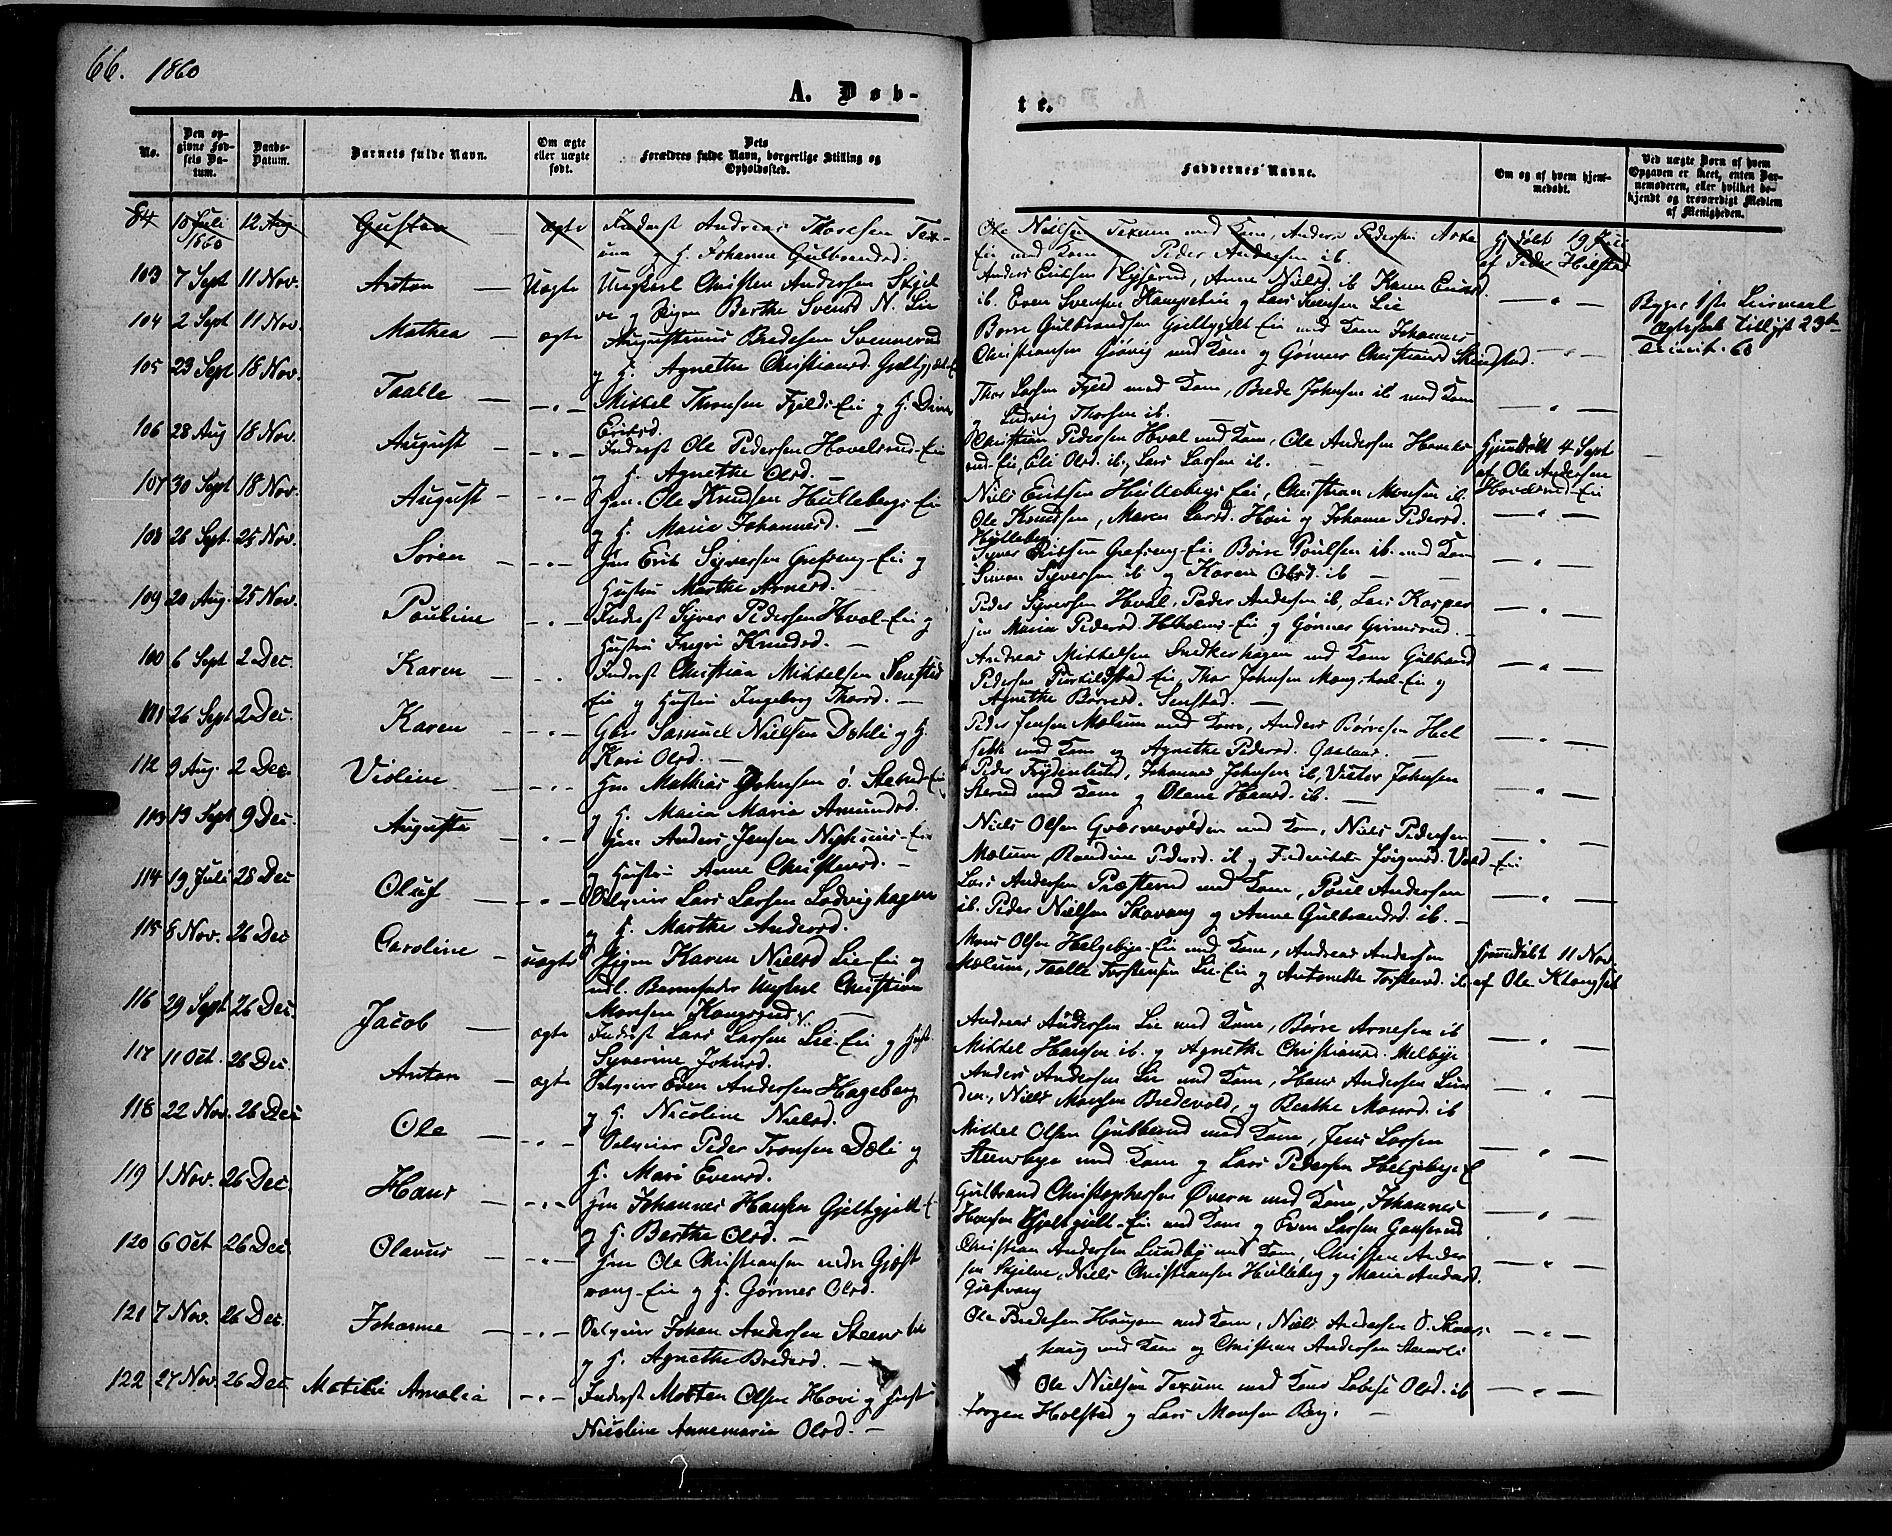 66. 1860
A. Døb-
te.
No.
Den op-
givne Fød-
sels Da-
tum.
Daabs-
Datum.
Barnets fulde Navn.
Om ægte
eller uægte
født.
Dets
Forældres fulde Navn, borgerlige Stilling og
Opholdssted.
Faddernes Navne.
Om og af hvem hjem-
medøbt.
Ved uægte Børn af hvem
Opgaven er skeet, enten Bar-
nemoderen, eller hvilket be-
kjendt og troværdigt Medlem
af Menigheden.
84 10 Juli 1860 12 Aug Gustav ægte Inderst Andreas Thoresen Tex-
um og H. Johanne Gulbrandsd.
Ole Nielsen Texum med Kone, Anders Pedersen
Eie med Kone Peder Andersen ib.
Hj døbt 19 Juli
af Peder Helstad
103 7 Sept 11 Nov. Anton Uægte Ungkarl Christen Andersen Skjel
ve og Pigen Berthe Svensd N. Lie
Anders Eriksen, Anne Nielsd. ib Karen Eriksd.
ib. Even Svensen og Lars Hansen Lie
104 2 Sept 11 Nov. Mathea ægte Augustinus Bredesen Svennerud
og H. Agnethe Christiansd. Gjeltgjelt-E
Børre Gulbrandsen Gjeltgjelt Eie med Kone Johannes
Christiansen Gjøvig med Kone og Gørner Christiansd
105 23 Sept 18 Nov. Taalle Mikkel Thoresen Fjelds-Eie og H.
Eriksd.
Thor Larsen Fjeld med Kone, Brede Johnsen ib med Kone
Ludvig Thorsen ib.
106 28 Aug 18 Nov. August Inderst Ole Pedersen Hovelsrud-Eie
og H. Agnethe Olsd.
Christian Pedersen Hval med Kone, Ole Andersen Hovels
rud-Eie, Eli Olsd. ib, Lars Larsen ib.
Hjemdøbt 4 Sept
af Ole Andersen
Hovelsrud-Eie
107 30 Sept 18 Nov. August Hm. Ole Knudsen Hullebergs Eie
og H. Marie Johannesd.
Niels Eriksen Hullebergs Eie, Christian Monsen ib.
Ole Knudsen, Maren Larsd. Hovi og Johanne Pedersd.
Hulleberg
108 26 Sept. 25 Nov. Søren Hm Erik Syversen Grefseng-Eie og
Hustru Marthe Arnesd.
Syver Eriksen Grefseng-Eie Børre Poulsen ib. med Kone
Simon Syversen ib og Karen Olsd. ib
109 20 Aug. 25 Nov. Pauline Inderst Syver Pedersen Hval-Eie og
Hustru Ingri Knudsd.
Peder Syversen Hval, Peder Andersen ib, Lars Kasper
sen Maria Pedersd.-Eie og Gørner
100 6 Sept 2 Dec. Karen Inderst Christian Mikkelsen Senstad
Eie og Hustru Ingeborg Thorsd.
Andreas Mikkelsen Snekkerhagen med Kone Gulbrand
Pedersen Eie, Thor Johnsen-Eie og
Agnethe Børresd. Senstad.
101 26 Sept 2 Dec. Karen Gbr Samuel Nielsen Dæhli og H.
Kari Olsd.
Peder Jensen Mælum med Kone, Anders Børresen Hel
sett med Kone og Agnethe Pedersd.
112 9 Aug. 2 Dec. Violine Hm Mathias Johnsen ø. Stensrud-Eie
og H. Maria Maria Amundsd.
Peder Frydenlund, Johannes Johnsen ib, Victor Johnsen
Sterud med Kone og Olene Hansd. ib.
113 13 Sept 9 Dec. Augusta Hm Anders Jensen-Eie
og Hustru Anne Christensd.
Niels Olsen Qværnevolden med Kone, Niels Pedersen
Mælum, Randine Pedersd. ib og Frederikke Jørgensd. Vold-Eie
114 19 Juli 23 Dec Oluf Selveier Lars Larsen Lodvighagen
og H. Marthe Andersd.
Lars Andersen Præsterud med Kone, Poul Andersen
ib. Peder Nielsen Skovang og Anne Gulbrandsd. ib.
115 8 Nov. 26 Dec Caroline uægte Pigen Karen Nielsd Lie-Eie og
udl. Barnefader Ungkarl Christian
Monsen
Mons Olsen Helgebye-Eie med Kone, Andreas Andersen
Mælum, Taalle Torstensen Lie-Eie og Antonette Torstensd. ib.
Hjemdøbt 11 Nov.
af Ole Klongset
116 29 Sept 26 Dec. Jacob ægte Inderst Lars Larsen N. Lie-Eie og Hust
Syverine Johnsd.
Andreas Andersen Lie med Kone, Børre Arnesen ib
Mikkel Hansen ib. og Agnethe Christiansd. Melbye
117 11 Oct. 26 Dec. Anton ægte Selveier Even Andersen Hageberg
og H. Nicoline Nielsd.
Anders Andersen Lie med Kone, Hans Andersen Lun
den, Niels Monsen Bredevold, og Beathe Monsd. ib
118 22 Nov. 26 Dec Ole Selveier Peder Tronsen Dæli og
H. Mari Evensd.
Mikkel Olsen Gubberud med Kone, Jens Larsen
Steensbye med Kone og Lars Pedersen Helgebye-E
119 1 Nov. 26 Dec. Hans Hm Johannes Hansen Gjeltgjelt-E
og H. Berthe Olsd.
Gulbrand Christophersen Øvern med Kone, Johannes
Hansen Gjeltgjelt-Eie med Kone og Even Larsen
120 6 Oct 26 Dec. Olevus Hm Ole Christiansen nedre Gjøst
vang-Eie og H. Gørner Olsd.
Christian Andersen Lundby med Kone, Christen Ander
sen Skjelve, Niels Christiansen Hulleberg og Marie Andersd.
Gjøstvang
121 7 Nov. 26 Dec. Johanne Selveier Johan Andersen Steensli
og H. Agnethe Bredesd.
Ole Bredesen Haugom med Kone, Niels Andersen ø. Skar-
haug med Kone og Christian Andersen Steensli
122 27 Nov. 26 Dec. Matilie Amalia Inderst Morten Olsen Hovi og Hust
Nicoline Annemarie Olsd.
Ole Nielsen Texum med Kone Lovise Olsd. ib
Jørgen Holstad og Lars Monsen Berg.
Begges 1ste Leiermaal
Ægteskab tillyst 23de
Trinit. 60